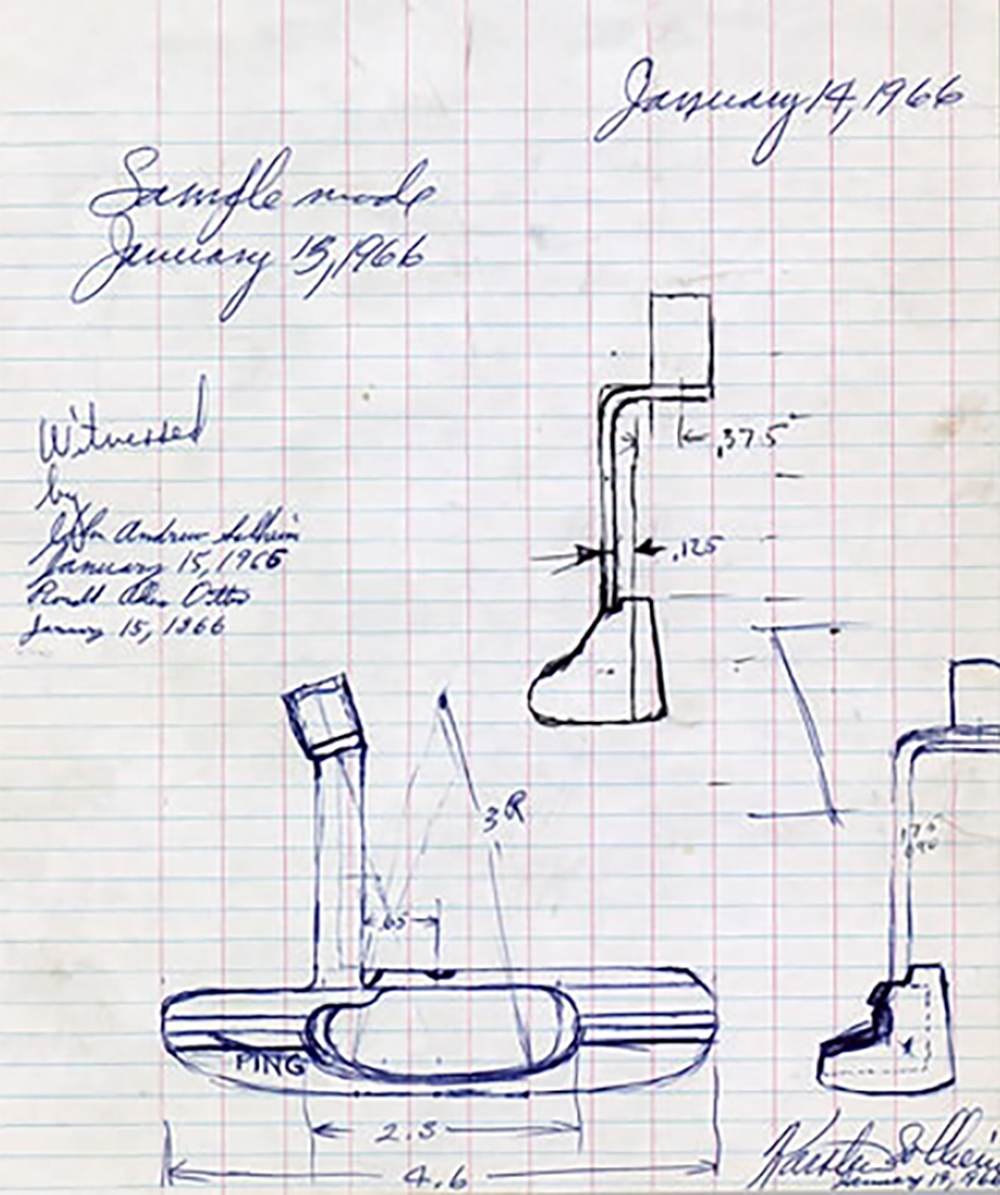 January 14, 1966
Sample made
January 15, 1966
.375
Witnessed
by
John Andrew Solheim
January 15, 1966
.125
Ronald Otto
January 15, 1966
3R
.65
PING
2.5
4.6
Karsten Solheim
January 14, 1966